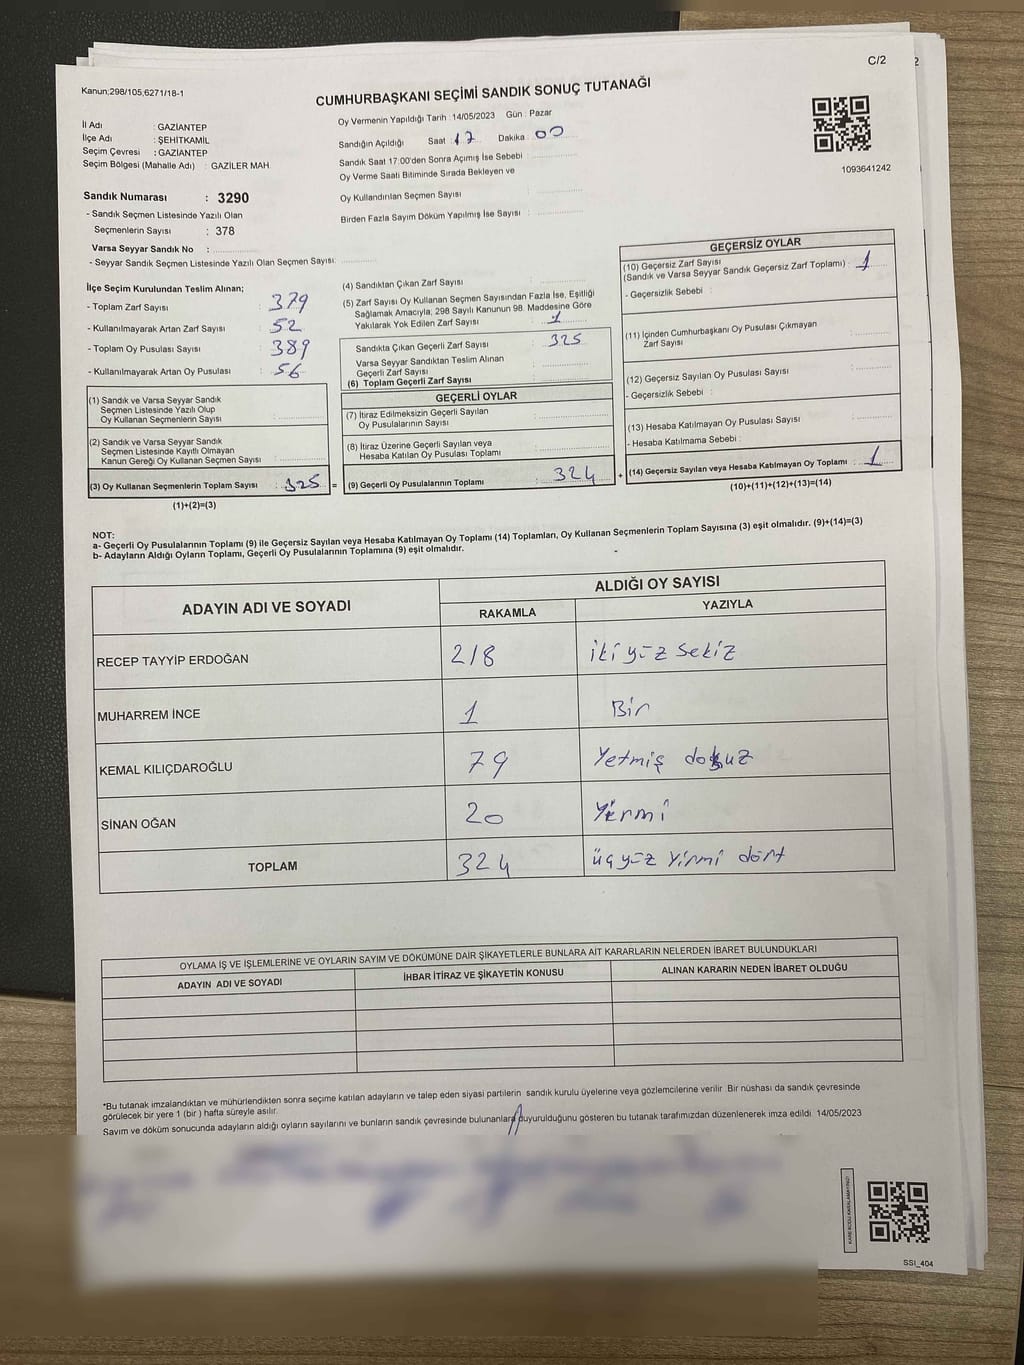 C/2
2
Kanun;298/105,6271/18-1
CUMHURBAŞKANI SEÇİMİ SANDIK SONUÇ TUTANAĞI
İl Adı : GAZİANTEP
İlçe Adı : ŞEHİTKAMİL
Seçim Çevresi : GAZİANTEP
Seçim Bölgesi (Mahalle Adı) : GAZİLER MAH.
Oy Vermenin Yapıldığı Tarih : 14/05/2023 Gün : Pazar
Sandığın Açıldığı Saat : 17 Dakika : 00
Sandık Saat 17:00'den Sonra Açımış İse Sebebi :
Oy Verme Saati Bitiminde Sırada Bekleyen ve
Oy Kullandırılan Seçmen Sayısı :
Birden Fazla Sayım Döküm Yapılmış İse Sayısı :
1093641242
Sandık Numarası : 3290
- Sandık Seçmen Listesinde Yazılı Olan
Seçmenlerin Sayısı : 378
Varsa Seyyar Sandık No :
- Seyyar Sandık Seçmen Listesinde Yazılı Olan Seçmen Sayısı:
İlçe Seçim Kurulundan Teslim Alınan;
- Toplam Zarf Sayısı : 379
- Kullanılmayarak Artan Zarf Sayısı : 52
- Toplam Oy Pusulası Sayısı : 389
- Kullanılmayarak Artan Oy Pusulası : 56
(1) Sandık ve Varsa Seyyar Sandık
Seçmen Listesinde Yazılı Olup
Oy Kullanan Seçmenlerin Sayısı :
(2) Sandık ve Varsa Seyyar Sandık
Seçmen Listesinde Kayıtlı Olmayan
Kanun Gereği Oy Kullanan Seçmen Sayısı :
(3) Oy Kullanan Seçmenlerin Toplam Sayısı : 325 =
(1)+(2)=(3)
(4) Sandıktan Çıkan Zarf Sayısı :
(5) Zarf Sayısı Oy Kullanan Seçmen Sayısından Fazla İse, Eşitliği
Sağlamak Amacıyla, 298 Sayılı Kanunun 98. Maddesine Göre
Yakılarak Yok Edilen Zarf Sayısı : 1
Sandıkta Çıkan Geçerli Zarf Sayısı : 325
Varsa Seyyar Sandıktan Teslim Alınan
Geçerli Zarf Sayısı :
(6) Toplam Geçerli Zarf Sayısı :
GEÇERLİ OYLAR
(7) İtiraz Edilmeksizin Geçerli Sayılan
Oy Pusulalarının Sayısı :
(8) İtiraz Üzerine Geçerli Sayılan veya
Hesaba Katılan Oy Pusulası Toplamı :
(9) Geçerli Oy Pusulalarının Toplamı : 324 +
GEÇERSİZ OYLAR
(10) Geçersiz Zarf Sayısı
(Sandık ve Varsa Seyyar Sandık Geçersiz Zarf Toplamı) : 1
- Geçersizlik Sebebi :
(11) İçinden Cumhurbaşkanı Oy Pusulası Çıkmayan
Zarf Sayısı :
(12) Geçersiz Sayılan Oy Pusulası Sayısı :
- Geçersizlik Sebebi :
(13) Hesaba Katılmayan Oy Pusulası Sayısı :
- Hesaba Katılmama Sebebi :
(14) Geçersiz Sayılan veya Hesaba Katılmayan Oy Toplamı : 1
(10)+(11)+(12)+(13)=(14)
NOT:
a- Geçerli Oy Pusulalarının Toplamı (9) ile Geçersiz Sayılan veya Hesaba Katılmayan Oy Toplamı (14) Toplamları, Oy Kullanan Seçmenlerin Toplam Sayısına (3) eşit olmalıdır. (9)+(14)=(3)
b- Adayların Aldığı Oyların Toplamı, Geçerli Oy Pusulalarının Toplamına (9) eşit olmalıdır.
ADAYIN ADI VE SOYADI ALDIĞI OY SAYISI
RAKAMLA YAZIYLA
RECEP TAYYİP ERDOĞAN 218 iki yüz sekiz
MUHARREM İNCE 1 Bir
KEMAL KILIÇDAROĞLU 79 Yetmiş dokuz
SİNAN OĞAN 20 Yirmi
TOPLAM 324 üçyüz yirmi dört
OYLAMA İŞ VE İŞLEMLERİNE VE OYLARIN SAYIM VE DÖKÜMÜNE DAİR ŞİKAYETLERLE BUNLARA AİT KARARLARIN NELERDEN İBARET BULUNDUKLARI
ADAYIN ADI VE SOYADI İHBAR İTİRAZ VE ŞİKAYETİN KONUSU ALINAN KARARIN NEDEN İBARET OLDUĞU
*Bu tutanak imzalandıktan ve mühürlendikten sonra seçime katılan adayların ve talep eden siyasi partilerin sandık kurulu üyelerine veya gözlemcilerine verilir. Bir nüshası da sandık çevresinde
görülecek bir yere 1 (bir ) hafta süreyle asılır.
Sayım ve döküm sonucunda adayların aldığı oyların sayılarını ve bunların sandık çevresinde bulunanlara duyurulduğunu gösteren bu tutanak tarafımızdan düzenlenerek imza edildi. 14/05/2023
SSI_404